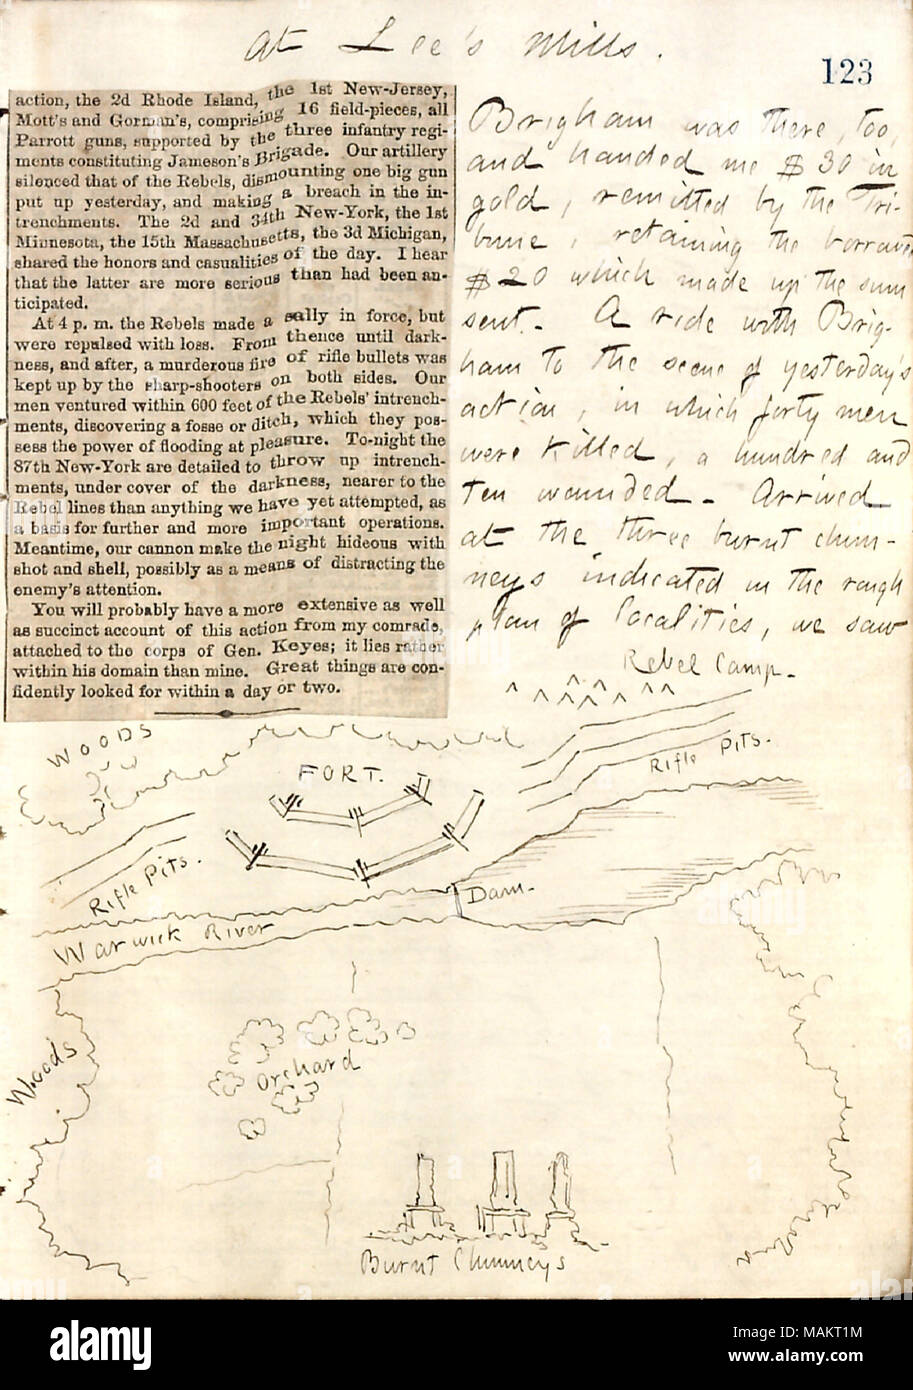 at Lee's Mills.
123
action, the 2d Rhode Island, the 1st New-Jersey,
Mott's and Gorman's, comprising 16 field-pieces, all
Parrott guns, supported by the three infantry regi-
ments constituting Jameson's Brigade. Our artillery
silenced that of the Rebels, dismounting one big gun
put up yesterday, and making a breach in the in-
trenchments. The 2d and 34th New-York, the 1st
Minnesota, the 15th Massachusetts, the 3d Michigan,
shared the honors and casualities of the day. I hear
that the latter are more serious than had been an-
ticipated.
At 4 p. m. the Rebels made a sally in force, but
were repulsed with loss. From thence until dark-
ness, and after, a murderous fire of rifle bullets was
kept up by the sharp-shooters on both sides. Our
men ventured within 600 feet of the Rebels' intrench-
ments, discovering a fosse or ditch, which they pos-
sess the power of flooding at pleasure. To-night the
87th New-York are detailed to throw up intrench-
ments, under cover of the darkness, nearer to the
Rebel lines than anything we have yet attempted, as
a basis for further and more important operations.
Meantime, our cannon make the night hideous with
shot and shell, possibly as a means of distracting the
enemy's attention.
You will probably have a more extensive as well
as succinct account of this action from my comrade,
attached to the corps of Gen. Keyes; it lies rather
within his domain than mine. Great things are con-
fidently looked for within a day or two.
Brigham was there, too,
and handed me $30 in
gold, remitted by the Tri-
bune, retaining the borrowed
$20 which made up the sum
sent. A ride with Brig-
ham to the scene of yesterday's
action, in which forty men
were killed, a hundred and
ten wounded. Arrived
at the three burnt chim-
neys indicated in the rough
plan of localities, we saw
Rebel Camp.
Woods
FORT.
Rifle Pits.
Rifle Pits.
Dam.
Warwick River
Woods
Orchard
Burnt Chimneys
alamy
Image ID: MAKT1M
www.alamy.com